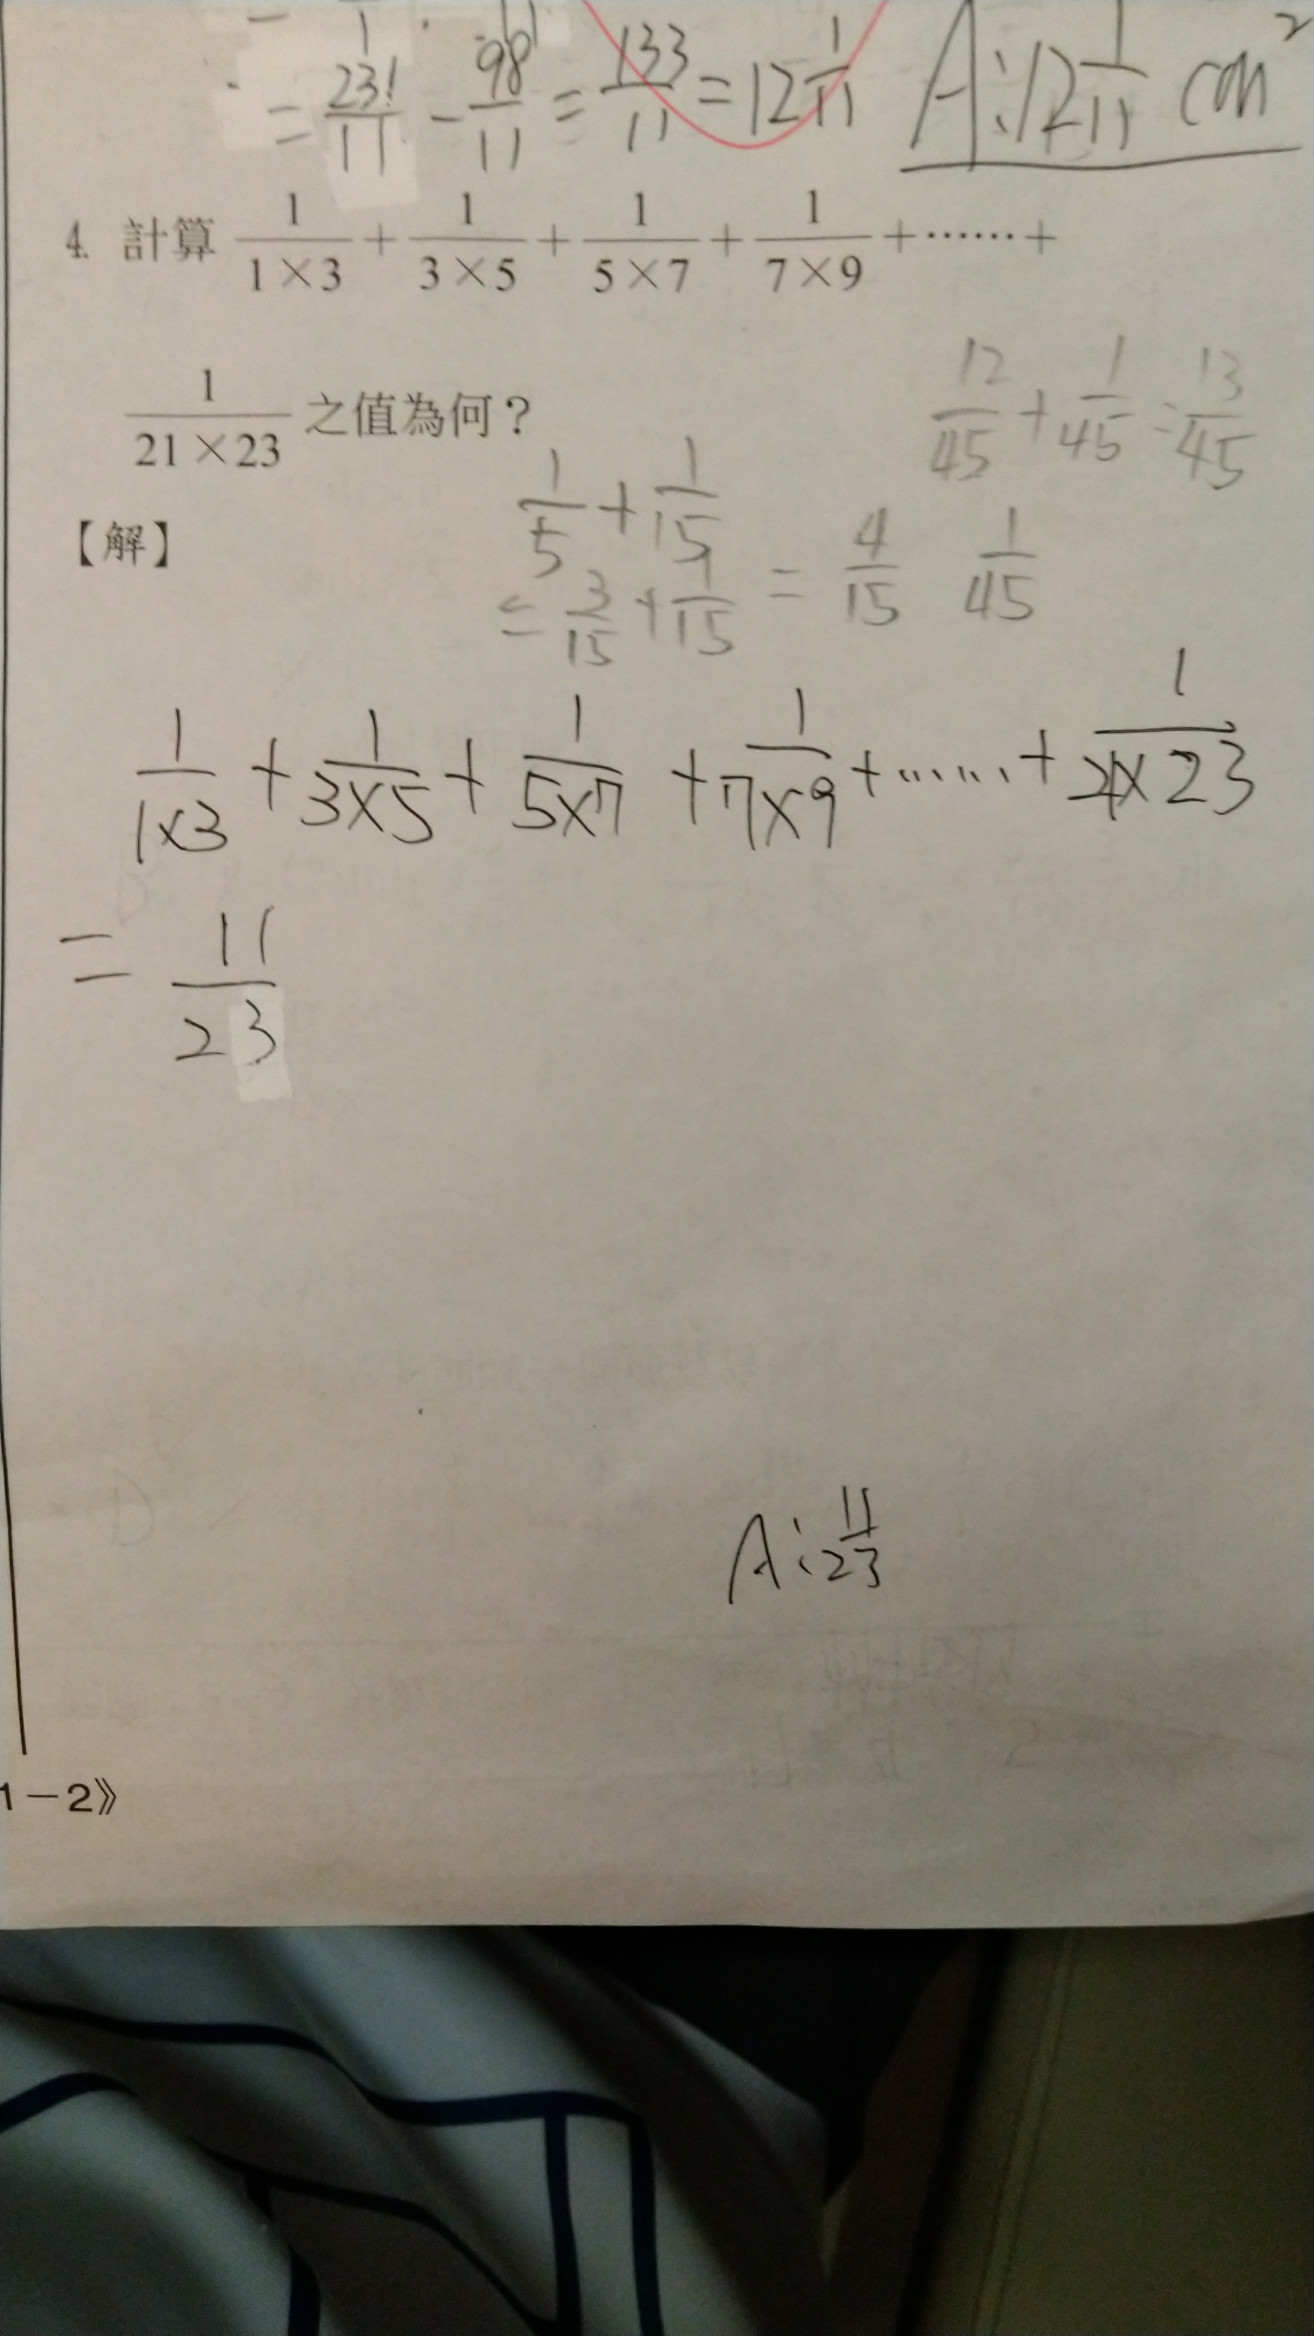 = 231/11 - 98/11 = 133/11 = 12 1/11  A:12 1/11 cm²
4. 計算 1/(1×3) + 1/(3×5) + 1/(5×7) + 1/(7×9) + …… +
1/(21×23) 之值為何？
12/45 + 1/45 = 13/45
【解】
1/5 + 1/15
= 3/15 + 1/15 = 4/15  1/45
1/(1×3) + 1/(3×5) + 1/(5×7) + 1/(7×9) + …… + 1/(21×23)
= 11/23
A: 11/23
1－2》